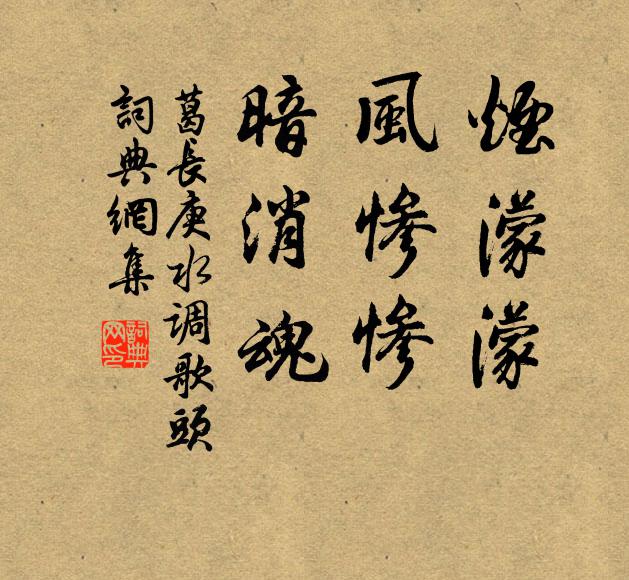 煙濛濛
風惨惨
暗消魂
葛長庚水调歌頭
詞典網集
詞典
网印